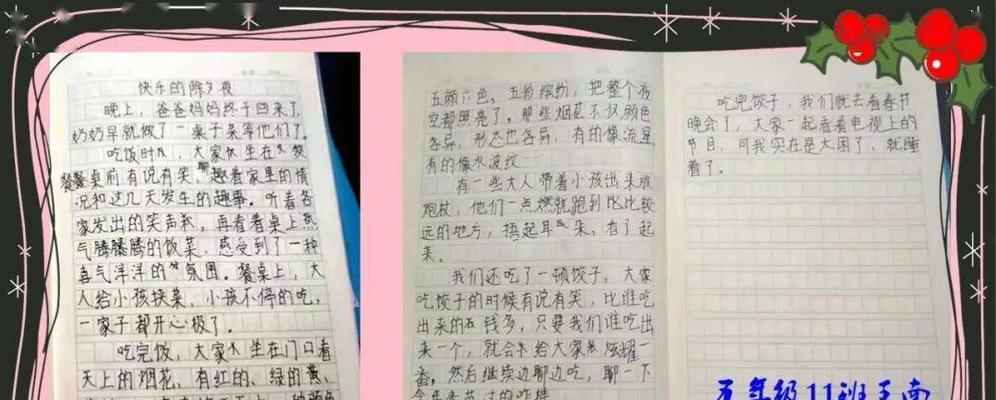 快乐的除夕夜
晚上，爸爸妈妈终于回来了，
奶奶早就做了一桌子菜等他们了。
吃饭时，大家坐在
餐桌前有说有笑，趣着家里的情
况和这几天发生的趣事。听着各
家发出的笑声和，再看着桌上热
气腾腾的饭菜，感受到了一种
喜气洋洋的氛围。餐桌上，大
人给小孩挟菜，小孩不停的吃，
一家子都开心极了。
吃完饭，大家坐在门口看
天上的烟花，有红的、绿的黄，
五颜六色，五彩缤纷，把整个夜
空都照亮了。那些烟花不仅颜色
各异，形态也各异，有的像流星，
有的像水波纹……
有一些大人带着小孩出来放
炮杖，他们一点燃就跑到比较
远的地方，捂起耳朵，看了起
来。
我们还吃了一顿饺子，大家
吃饺子的时候有说有笑，比谁吃
出来的钱多，只要我们谁吃出
来一个，就会给大家炫耀一
番，然后继续边聊边吃，聊一下
今年春节过的咋样
吃完饺子，我们就去看春节
晚会了，大家一起看着电视上的
节目，可我实在是太困了，就睡
着了。
五年级11班王南